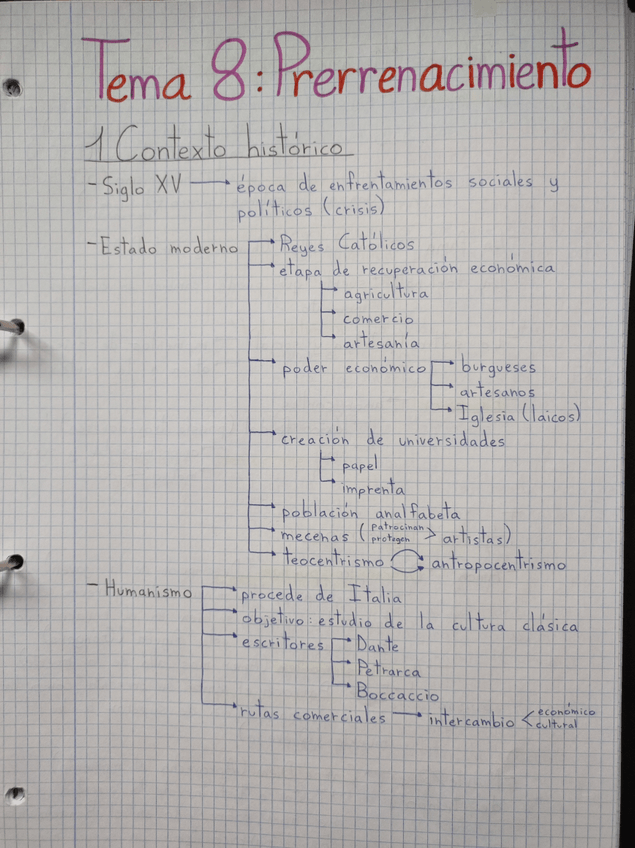 Tema 8: Prerrenacimiento
1 Contexto histórico
- Siglo XV → época de enfrentamientos sociales y
políticos (crisis)
- Estado moderno → Reyes Católicos
→ etapa de recuperación económica
→ agricultura
→ comercio
→ artesanía
→ poder económico → burgueses
→ artesanos
→ Iglesia (laicos)
→ creación de universidades
→ papel
→ imprenta
→ población analfabeta
→ mecenas (patrocinan protegen > artistas)
→ teocentrismo antropocentrismo
- Humanismo → procede de Italia
→ objetivo: estudio de la cultura clásica
→ escritores → Dante
→ Petrarca
→ Boccaccio
→ rutas comerciales → intercambio < económico
cultural